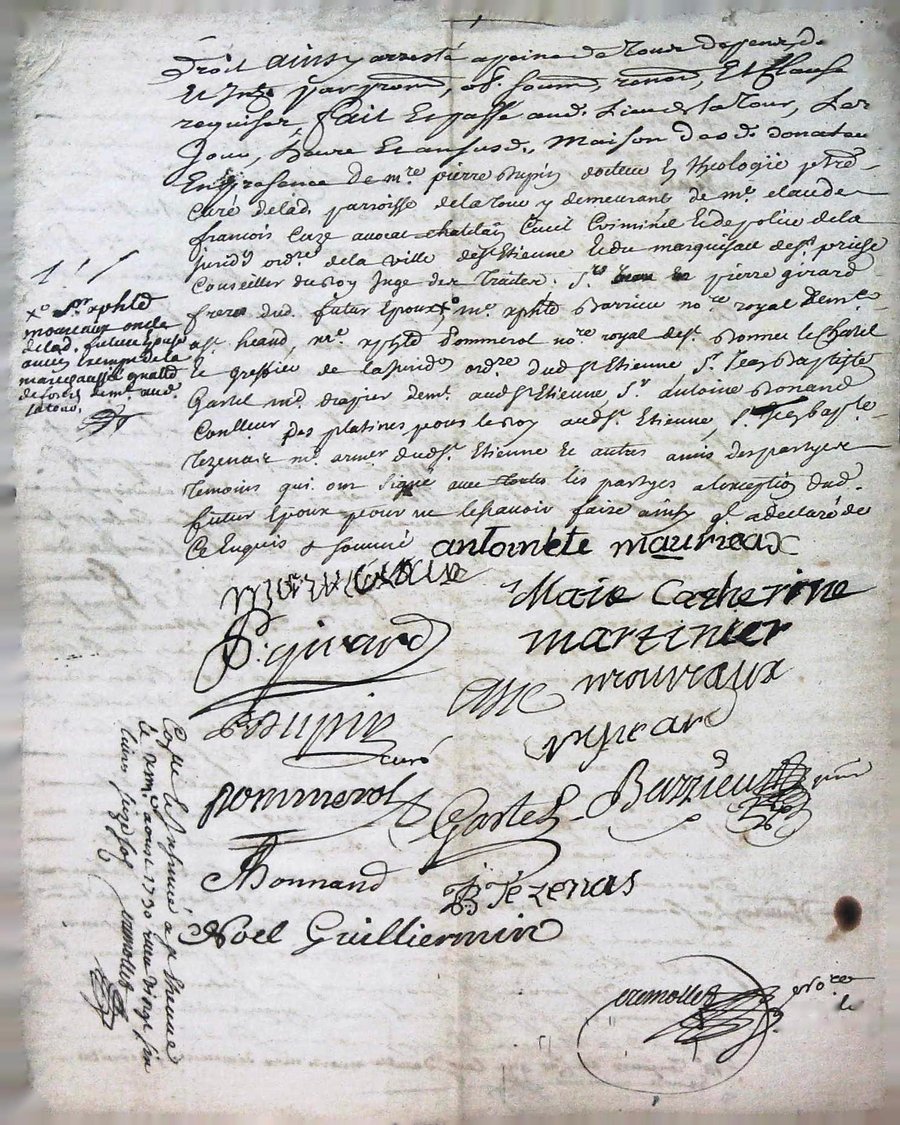 droit ainsy arresté a peine de tous despens, d.
et Intz par prom, ob. soum, renon, Et Clause
requise, fait et passé aud. Lieu de la tour, Les
Jour, heure et an susd., maison desd. donateu
En presence de mre pierre Dupin docteur En theologie ptre
Curé de lad. parroisse de la tour y demeurant de mre claude
françois Cuze avocat chatelain Civil Criminel et de police de la
juridon ordre de la ville de st Etienne et du marquisat de st priest
Conseiller du Roy Juge des Traites. Srs pierre girard
frere dud. futur Epoux x° me xphle Barrieu nore royal demt
a st heand, mre xphle Pommerol nore royal de st. Bonnet le Chatel
et greffier de la juridon ordre dud st Etienne Sr. Jean Baptiste
Gastel md. drapier demt. aud st Etienne, Sr Antoine Bonand
Conlleur des platines pour le Roy aud st. Etienne, Sr. Jean bapte
Tezenas md. armer dud st. Etienne et autres amis des partyes
Temoins qui ont signé avec toutes les partyes a l'exception dud.
futur Epoux pour ne le scavoir faire ainsy ql. a declaré de
Ce Enquis & sommé
x° Sr. xphle
mouveaux oncle
de lad. future epouse
ancien Exempt de la
marechaussée
de forés demt. aud.
la tour.
antoinete mauveaux
Marie Catherine
martinier
P. girard
mouveaux
Dupin
curé
pommerol
Gastel
Barrieu
ABonnand
JB Tézenas
Noel Guilliermin
cremollet
no re
Conlle et scellé a st Etienne
le aoust 1730 reçu